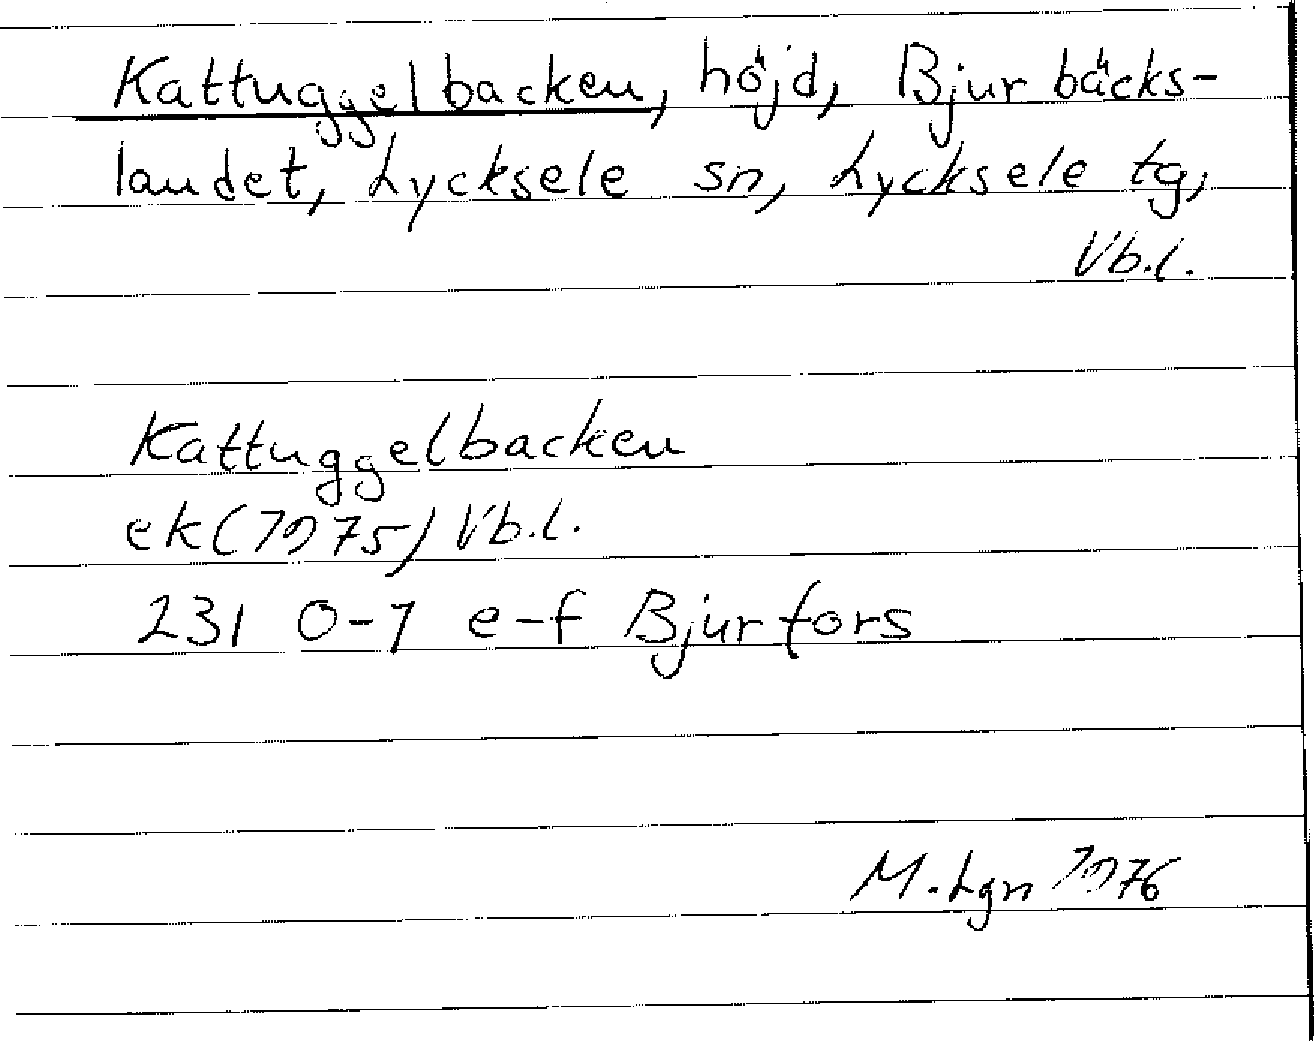 Kattuggelbacken, höjd, Bjurbäcks-
landet, Lycksele sn, Lycksele tg,
Vb.l.
Kattuggelbacken
ek(1975) Vb.l.
231 0-1 e-f Bjurfors
M. Lgn 1976